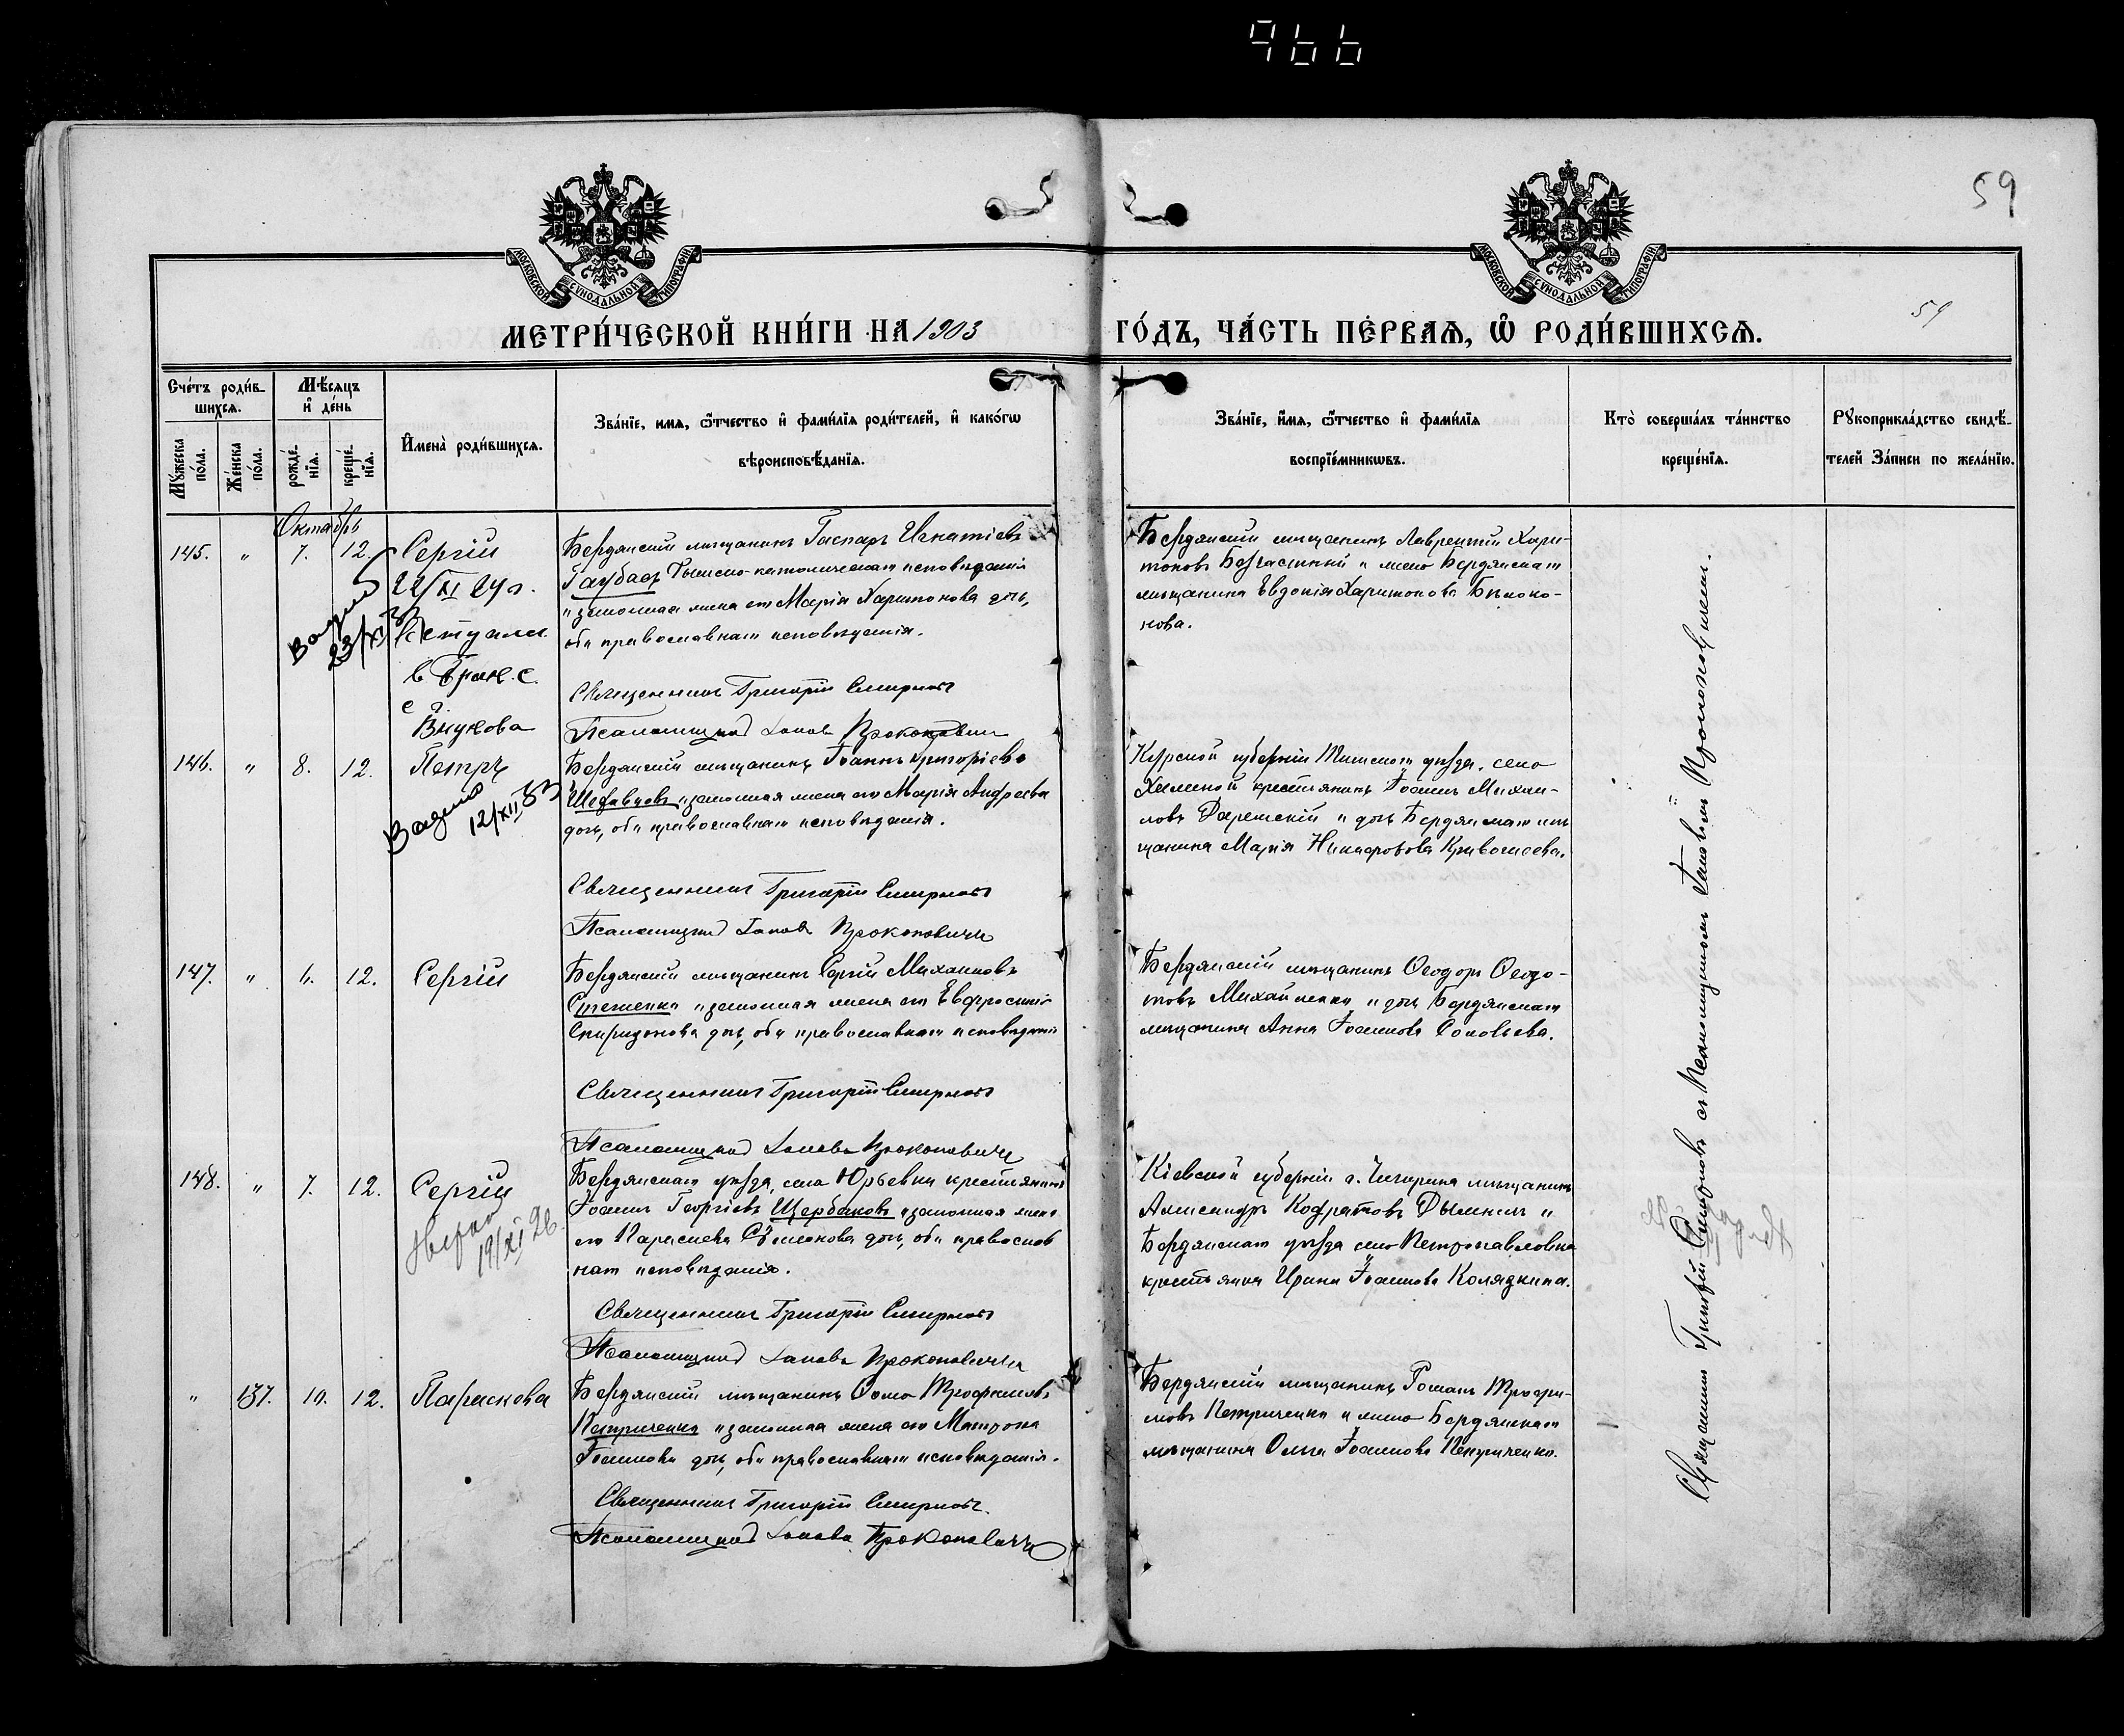 966
59
МОСКОВСКОЙ СУНОДАЛЬНОЙ ТИПОГРАФІИ.
МОСКОВСКОЙ СУНОДАЛЬНОЙ ТИПОГРАФІИ.
МЕТРИ́ЧЕСКОЙ КНИ́ГИ НА 1903
ГО́ДЪ, ЧА́СТЬ ПЕ́РВАЯ, Ѽ РОДИ́ВШИХСЯ.
59
Сче́тъ роди́в-
шихся.
Мѣ́сяцъ
и҆ де́нь
Му́жеска по́ла.
Же́нска по́ла.
рожде́-
нїя.
креще́-
нїя.
И҆мена̀ роди́вшихся.
Зва́нїе, имя, ѻ҆́тчество и҆ фами́лїя роди́телей, и҆ како́гѡ
вѣроисповѣ́данїя.
Зва́нїе, и҆́мя, ѻ҆́тчество и҆ фами́лїя
воспрїе́мникѡвъ.
Кто̀ соверша́лъ та́инство
креще́нїя.
Рꙋкоприкла́дство свидѣ́-
телей За́писи по жела́нїю.
Октябрь
145. " 7. 12. Сергій
22/XI 24 г.
Вступил
в брак. с.
с г.
Внукова
Бердянскій мѣщанинъ Гаспаръ Игнатіевъ
Гаубасъ Римско-католическаго исповѣданія
и законная жена его Марія Харитонова дочь,
оба православнаго исповѣданія.
Священникъ Григорій Смирновъ
Псаломщикъ Іаковъ Прокоповичъ
Бердянскій мѣщанинъ Лаврентій Хари-
тоновъ и жена Бердянскаго
мѣщанина Евдокія Харитонова Бѣлоко-
нова.
146. " 8. 12. Петръ
12/XII 53
Бердянскій мѣщанинъ Іоаннъ Григоріевъ
и законная жена его Марія Андреева
дочь, оба православнаго исповѣданія.
Священникъ Григорій Смирновъ
Псаломщикъ Іаковъ Прокоповичъ
Курской губерніи Тимскаго уѣзда, села
крестьянинъ Іоаннъ Михаи-
ловъ и дочь Бердянскаго мѣ-
щанина Марія Никифорова Кривошеева.
147. " 6. 12. Сергій
Бердянскій мѣщанинъ Сергій Михаиловъ
Стеженко и законная жена его Евфросинія
Спиридонова дочь, оба православнаго исповѣданія
Священникъ Григорій Смирновъ
Псаломщикъ Іаковъ Прокоповичъ
Бердянскій мѣщанинъ Ѳеодоръ Ѳеодо-
товъ Михайленко и дочь Бердянскаго
мѣщанина Анна Іоаннова Соловьева.
148. " 7. 12. Сергій
19/XI 26
Бердянскаго уѣзда, села Юрьевки крестьянинъ
Іоаннъ Георгіевъ Щербаковъ и законная жена
его Параскева Сѵмеонова дочь, оба православ
наго исповѣданія.
Священникъ Григорій Смирновъ
Псаломщикъ Іаковъ Прокоповичъ
Кіевской губерніи г. Чигирина мѣщанинъ
Александръ Кодратовъ и
Бердянскаго уѣзда села Петропавловка
крестьянка Ирина Іоаннова Колядкина.
" 137. 10. 12. Параскева
Бердянскій мѣщанинъ Ѳома Трофимовъ
Петриченко и законная жена его Матрона
Іоаннова дочь, оба православнаго исповѣданія.
Священникъ Григорій Смирновъ.
Псаломщикъ Іаковъ Прокоповичъ
Бердянскій мѣщанинъ Романъ Трофи-
мовъ Петриченко и жена Бердянскаго
мѣщанина Ольга Іоаннова Петриченко.
Священникъ Григорій Смирновъ съ Псаломщикомъ Іаковомъ Прокоповичемъ.